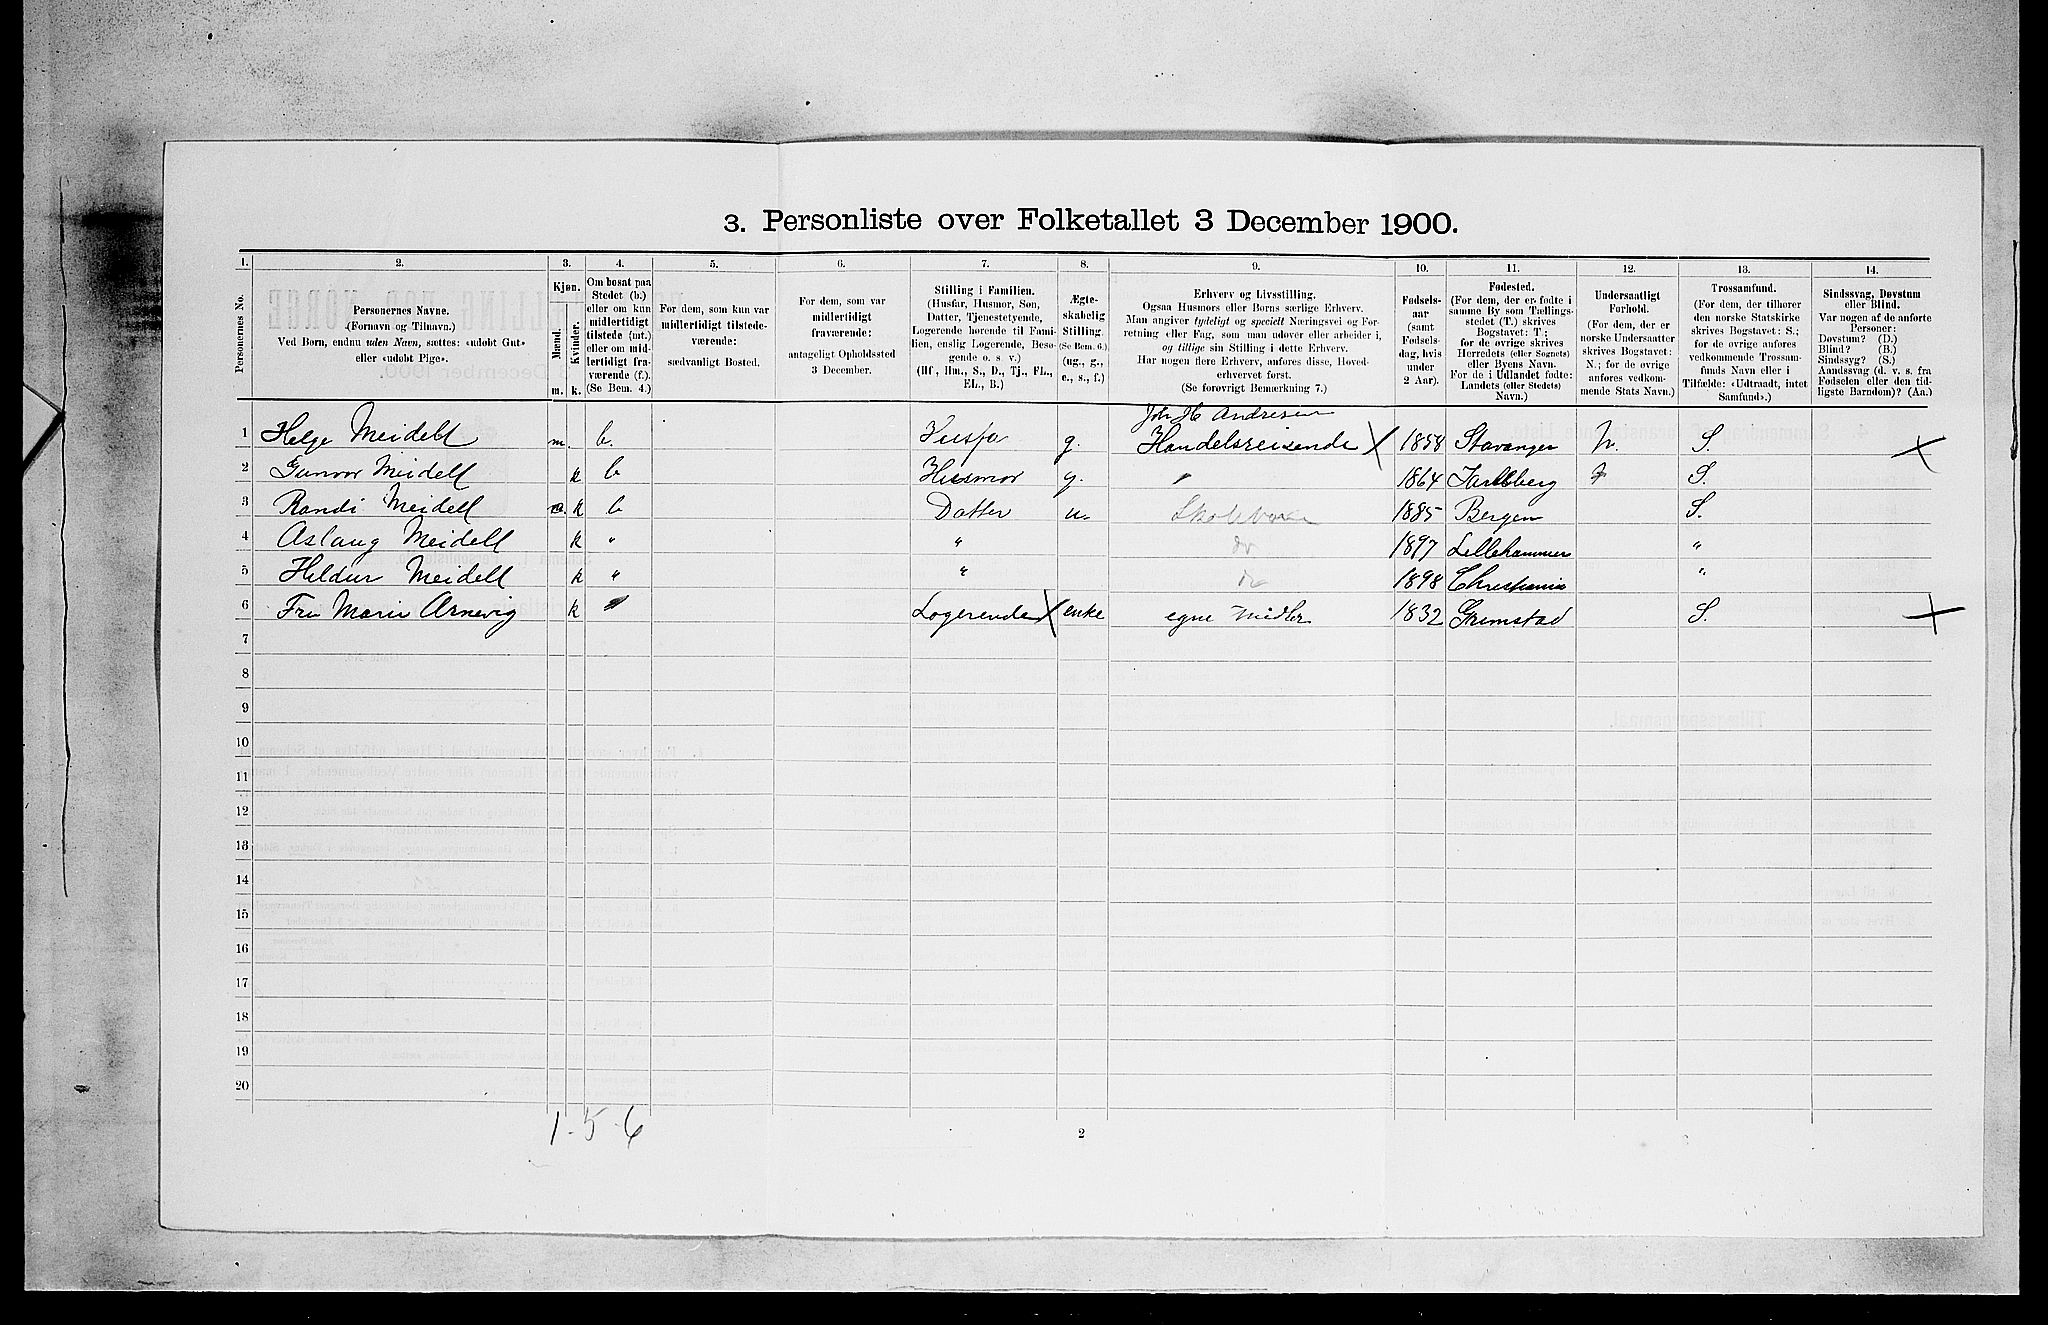 3. Personliste over Folketallet 3 December 1900.
1. 2. 3. 4. 5. 6. 7. 8. 9. 10. 11. 12. 13. 14.
Personernes No.
Personernes Navne.
(Fornavn og Tilnavn.)
Ved Børn, endnu uden Navn, sættes: «udøbt Gut»
eller «udøbt Pige».
Kjøn.
Mænd.
Kvinder.
m. k.
Om bosat paa
Stedet (b.)
eller om kun
midlertidigt
tilstede (mt.)
eller om mid-
lertidigt fra-
værende (f.).
(Se Bem. 4.)
For dem, som kun var
midlertidigt tilstede-
værende:
sædvanligt Bosted.
For dem, som var
midlertidigt
fraværende:
antageligt Opholdssted
3 December.
Stilling i Familien.
(Husfar, Husmor, Søn,
Datter, Tjenestetyende,
Logerende hørende til Fami-
lien, enslig Logerende, Besø-
gende o. s. v.)
(Hf., Hm., S., D., Tj., FL.,
EL., B.)
Ægte-
skabelig
Stilling.
(Se Bem. 6.)
(ug., g.,
e., s., f.)
Erhverv og Livsstilling.
Ogsaa Husmors eller Børns særlige Erhverv.
Man angiver tydeligt og specielt Næringsvei og For-
retning eller Fag, som man udøver eller arbeider i,
og tillige sin Stilling i dette Erhverv.
Har nogen flere Erhverv, anføres disse, Hoved-
erhvervet først.
(Se forøvrigt Bemærkning 7.)
Fødsels-
aar
(samt
Fødsels-
dag, hvis
under
2 Aar).
Fødested.
(For dem, der er fødte i
samme By som Tællings-
stedet (T.) skrives
Bogstavet: T;
for de øvrige skrives
Herredets (eller Sognets)
eller Byens Navn.
For de i Udlandet fødte:
Landets (eller Stedets)
Navn.)
Undersaatligt
Forhold.
(For dem, der er
norske Undersaatter
skrives Bogstavet:
N.; for de øvrige
anføres vedkom-
mende Stats Navn.)
Trossamfund.
(For dem, der tilhører
den norske Statskirke
skrives Bogstavet: S.;
for de øvrige anføres
vedkommende Trossam-
funds Navn eller i
Tilfælde: «Udtraadt, intet
Samfund».)
Sindssvag, Døvstum
eller Blind.
Var nogen af de anførte
Personer:
Døvstum? (D.)
Blind? (B.)
Sindssyg? (S.)
Aandssvag (d. v. s. fra
Fødselen eller den tid-
ligste Barndom)? (Aa.)
Joh H Andresen
1 Helge Meidell m. b. Husfa g. Handelsreisende X 1858 Stavanger N. S. X
2 Gunvor Meidell k b Husmor g. " 1864 S.
3 Randi Meidell k b Datter u. Skolebarn 1885 Bergen S.
4 Aslaug Meidell k " " do 1897 Lillehammer "
5 Heldur Meidell k " " do 1898 Christiania "
6 Fru Marie Arnevig k " Logerende X enke egne Midler 1832 Grimstad S. X
7
8
9
10
11
12
13
14
15
16
17
18
19
20
1 - 5 - 6
2